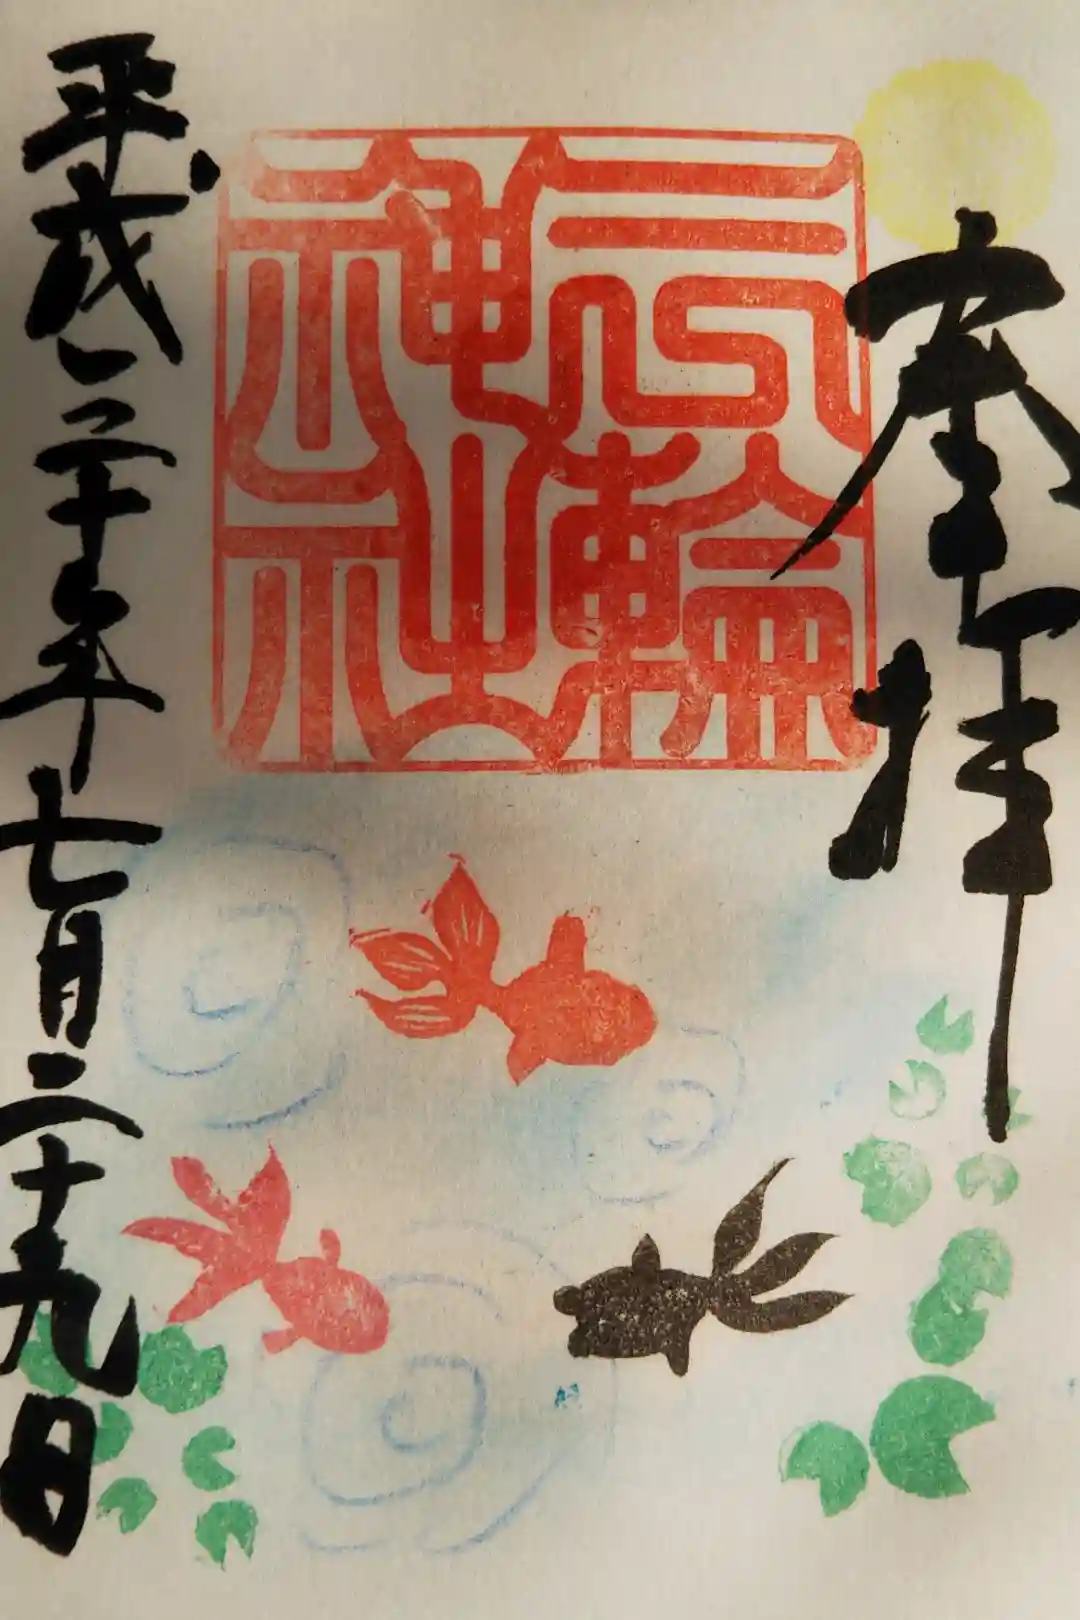 奉拝
三輪神社
平成三十年七月二十九日